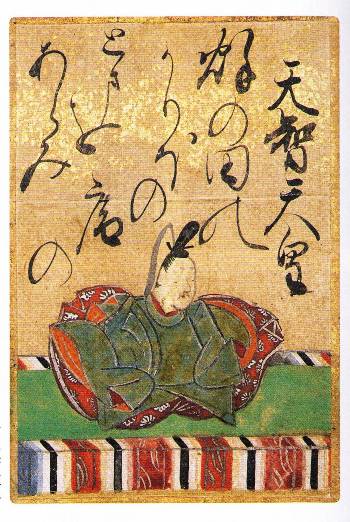 天智天皇
秋の田の
かりほの
庵の
とまをあらみ